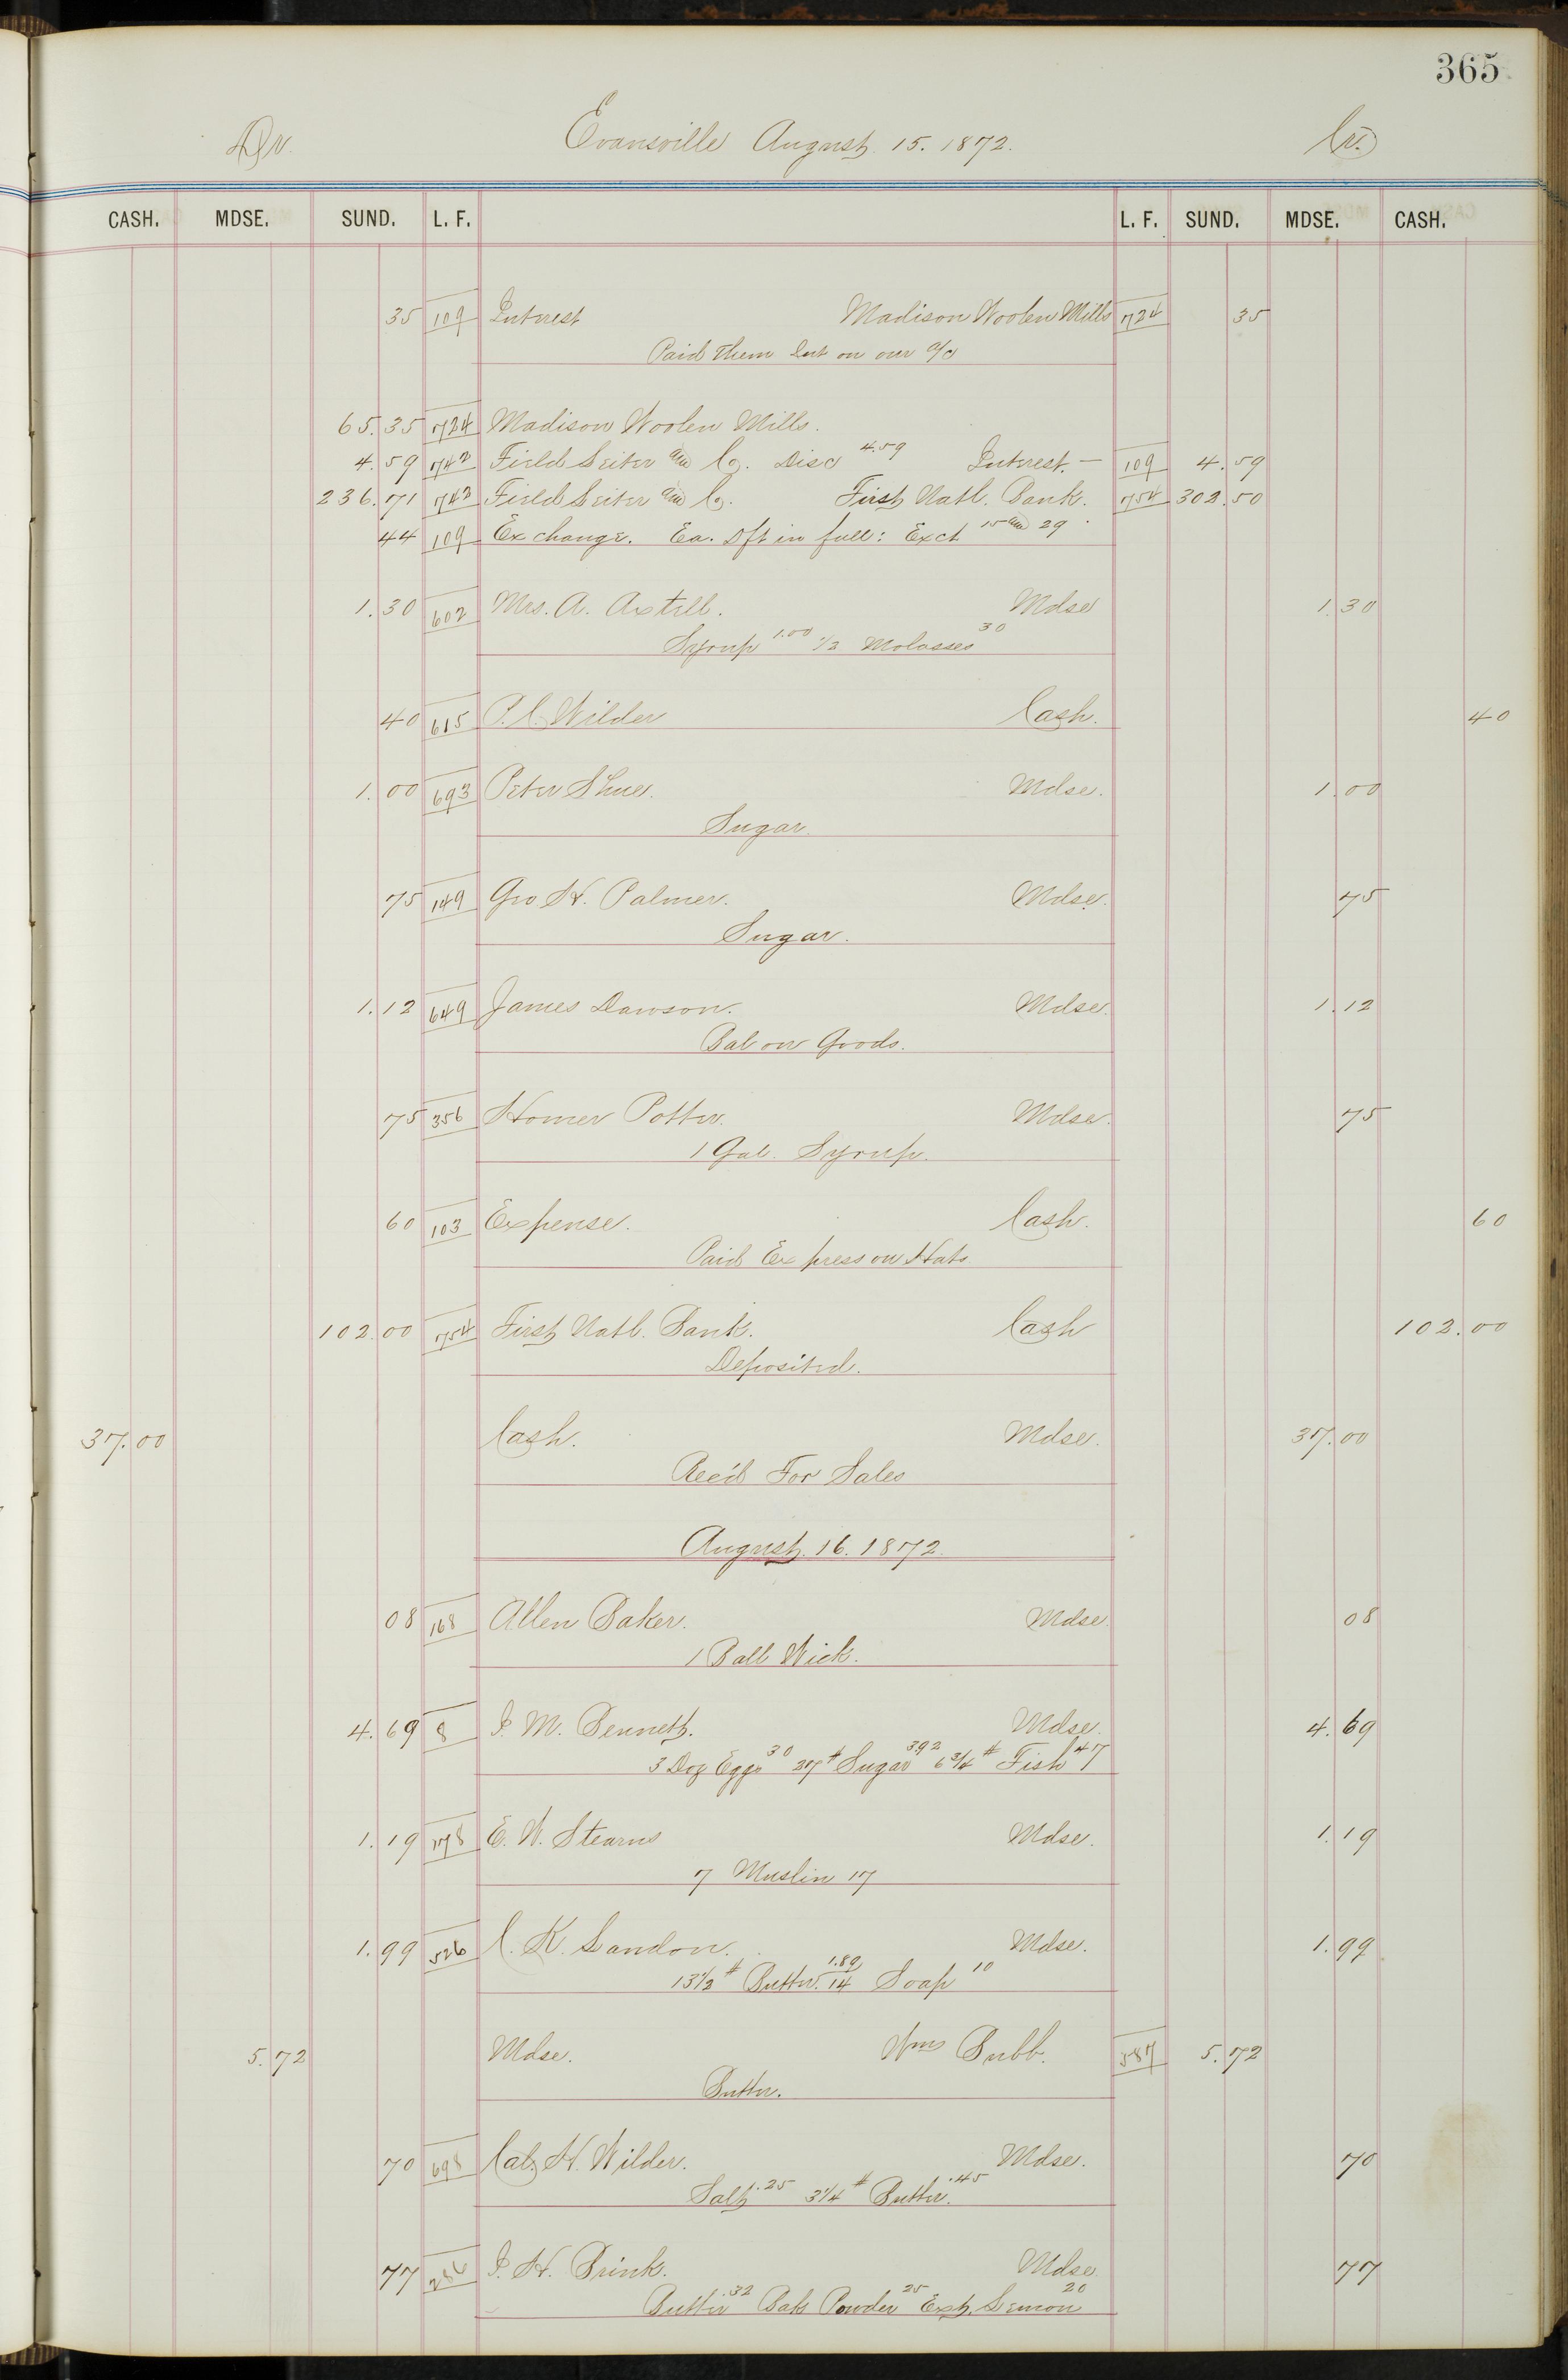 365
Dr. Evansville August 15. 1872. Cr.
CASH. MDSE. SUND. L. F. L. F. SUND. MDSE. CASH.
35 109 Interest Madison Woolen Mills 724 35
Paid Them Int on our a/c
65.35 724 Madison Woolen Mills.
4.59 742 Field Leiter & Co. Disc 4.59 Interest. — 109 4.59
236.71 742 Field Leiter & Co. First Natl. Bank. 754 302.50
44 109 Exchange. Ea. Dft in full: Exct 15 & 29
1.30 602 Mrs. A. Axtell. Mdse 1.30
Syrup 1.00 1/2 Molasses 30
40 615 P. C. Wilder Cash. 40
1.00 693 Peter Shue. Mdse. 1.00
Sugar.
75 149 Geo H. Palmer. Mdse. 75
Sugar.
1.12 649 James Dawson. Mdse. 1.12
Bal on Goods.
75 356 Homer Potter. Mdse. 75
1 Gal. Syrup.
60 103 Expense. Cash. 60
Paid Express on Hats
102.00 754 First Natl. Bank. Cash 102.00
Deposited.
37.00 Cash. Mdse. 37.00
Rec'd For Sales
August. 16. 1872.
08 168 Allen Baker. Mdse. 08
1 Ball Wick.
4.69 8 I. M. Bennett. Mdse. 4.69
3 Doz Eggs 30 37# Sugar 392 6 3/4# Fish 47
1.19 178 E. W. Stearns Mdse. 1.19
7 Muslin 17
1.99 526 C. K. Landon. Mdse. 1.99
13 1/2# Butter. 1.89 14 Soap 10
5.72 Mdse. Wm Bubb. 587 5.72
Butter.
70 698 Cal. H. Wilder. Mdse. 70
Salt .25 3 1/4# Butter. .45
77 286 I. H. Brink. Mdse. 77
Butter .32 Bak Powder 25 Ext. Lemon 20